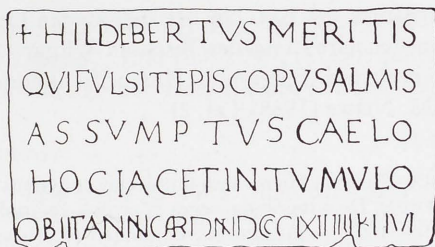 + HILDEBERTVS MERITIS
QVIFVLSIT EPISCOPVS ALMIS
ASSVMPTVS CAELO
HOC IACET IN TVMVLO
OBIIT ANN